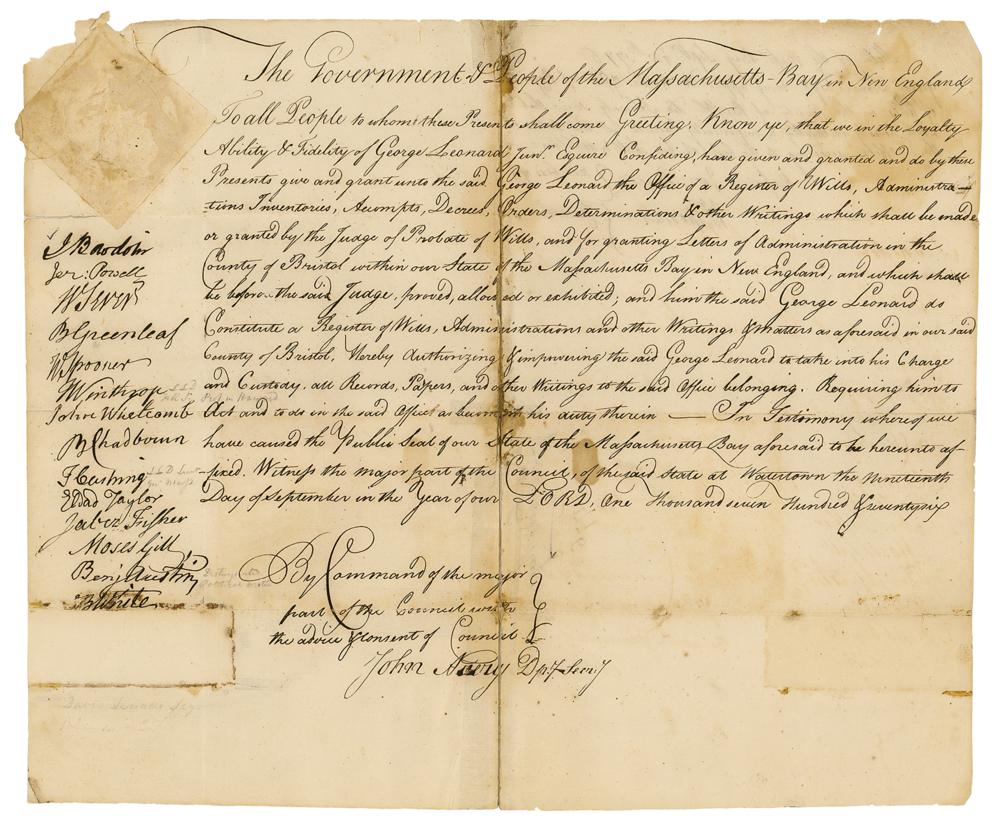 The Government & People of the Massachusetts-Bay in New England
To all People to whom these Presents shall come Greeting. Know ye, that we in the Loyalty
Ability & Fidelity of George Leonard Junr. Equire Confiding, have given and granted and do by these
Presents give and grant unto the said George Leonard the Office of a Register of Wills, Administra-
-tions Inventories, Accompts, Decrees, Orders, Determinations & other Writings which shall be made
or granted by the Judge of Probate of Wills, and for granting Letters of Administration in the
County of Bristol within our State of the Massachusetts Bay in New England, and which shall
be before the said Judge, proved, allowed or exhibited; and him the said George Leonard do
Constitute a Register of Wills, Administrations and other Writings & Matters as aforesaid in our said
County of Bristol, Hereby Authorizing & impowering the said George Leonard to take into his Charge
and Custody, all Records, Papers, and other Writings to the said Office belonging. Requiring him to
Act and to do in the said Office as becometh his duty therein — In Testimony whereof we
have caused the Public Seal of our State of the Massachusetts Bay aforesaid to be hereunto af-
-fixed. Witness the major part of the Council, of the said State at Watertown the Nineteenth
Day of September in the Year of our LORD, One Thousand seven Hundred & seventy six
J Bowdoin
Jer: Powell
W Sever
B Greenleaf
W Spooner
J Winthrop
John Whetcomb
B Chadbourn
T Cushing
Eldad Taylor
Jabez Fisher
Moses Gill
Benj Austin
B White
By Command of the major
part of the Council with
the advice & consent of Council
John Avery Dpy Secry